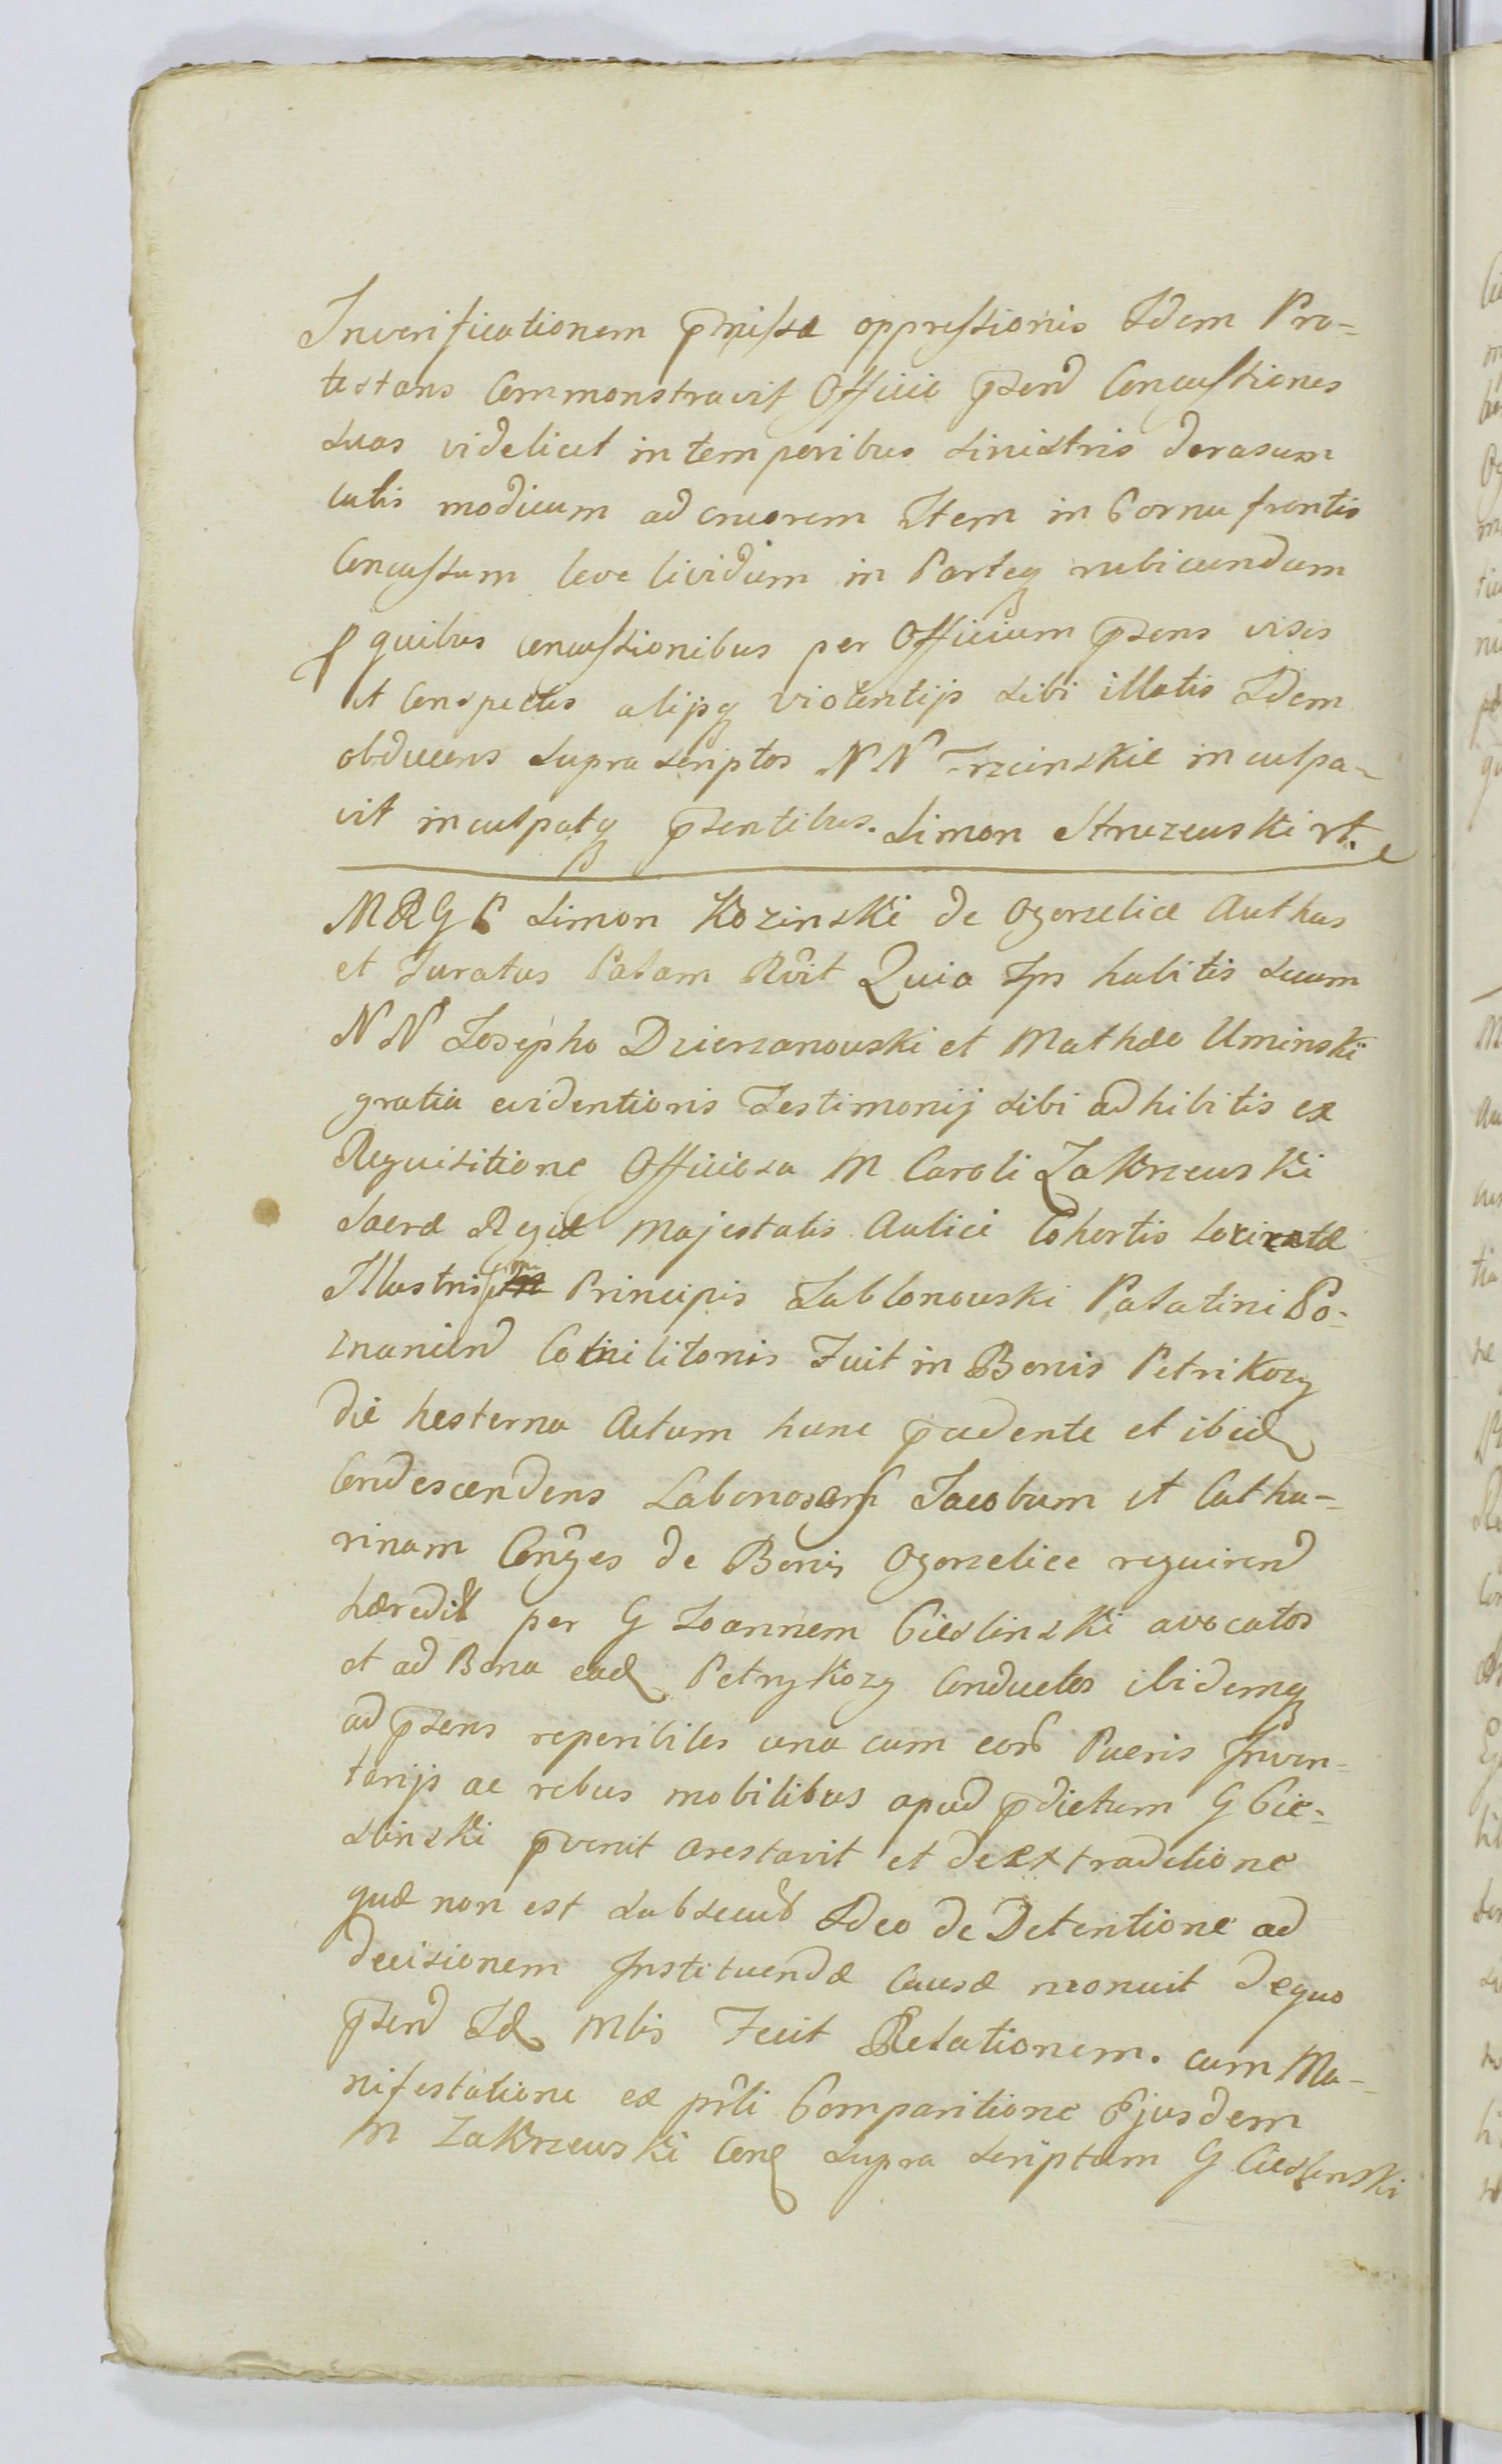 Inverificationem p̄missa oppressionis Idem Pro-
testans Commonstravit Officio p̄send Concussiones
suas videlicet in temporibus sinistris derasum
cutis modicum ad cruorem Item in Cornu frontis
Concussum leve lividum in Parteq rubicundum
P quibus concussionibus per Officium p̄sens visis
et Conspectis alijsq violentijs sibi illatis Idem
obducens supra scriptos NN Trzcinskie inculpa-
vit inculpatq p̄sentibus. Simon Struzewski rt.
MRGP Simon Kozinski de Ogorzelice Authus
et Juratus Palam Rvit Quia Ips habitis secum
NN Josepho Dzierzanowski et Mathæo Uminski
gratia evidentioris Testimonij sibi adhibitis ex
Requisitione Officiosa M Caroli Zakrzewski
Sacræ Regiæ Majestatis Aulici Cohortis Loricatæ
Illustrissimi Principis Jablonowski Palatini Po-
znanien Comilitonis Fuit in Bonis Petrikozy
die hesterna Actum hunc p̄cedente et ibid
Condescendens Laboriosos Jacobum et Catha-
rinam Conges de Bonis Ogorzelice requirend
hæredit per G Joannem Cieslinski avocatos
et ad Bona ead Petrykozy Conductos ibidemq
ad p̄sens reperibiles una cum eor Pueris Inven-
tarijs ac rebus mobilibus apud p̄dictum G Cie-
slinski p̄venit arestavit et de extraditione
quæ non est subsecut Ideo de Detentione ad
decisionem Instituendæ Causæ monuit Dequo
p̄send Id Mlis Fecit Relationem. cum Ma-
nifestatione ex prli Comparitione Ejusdem
M Zakrzewski Con supra scriptum G Cieslinski